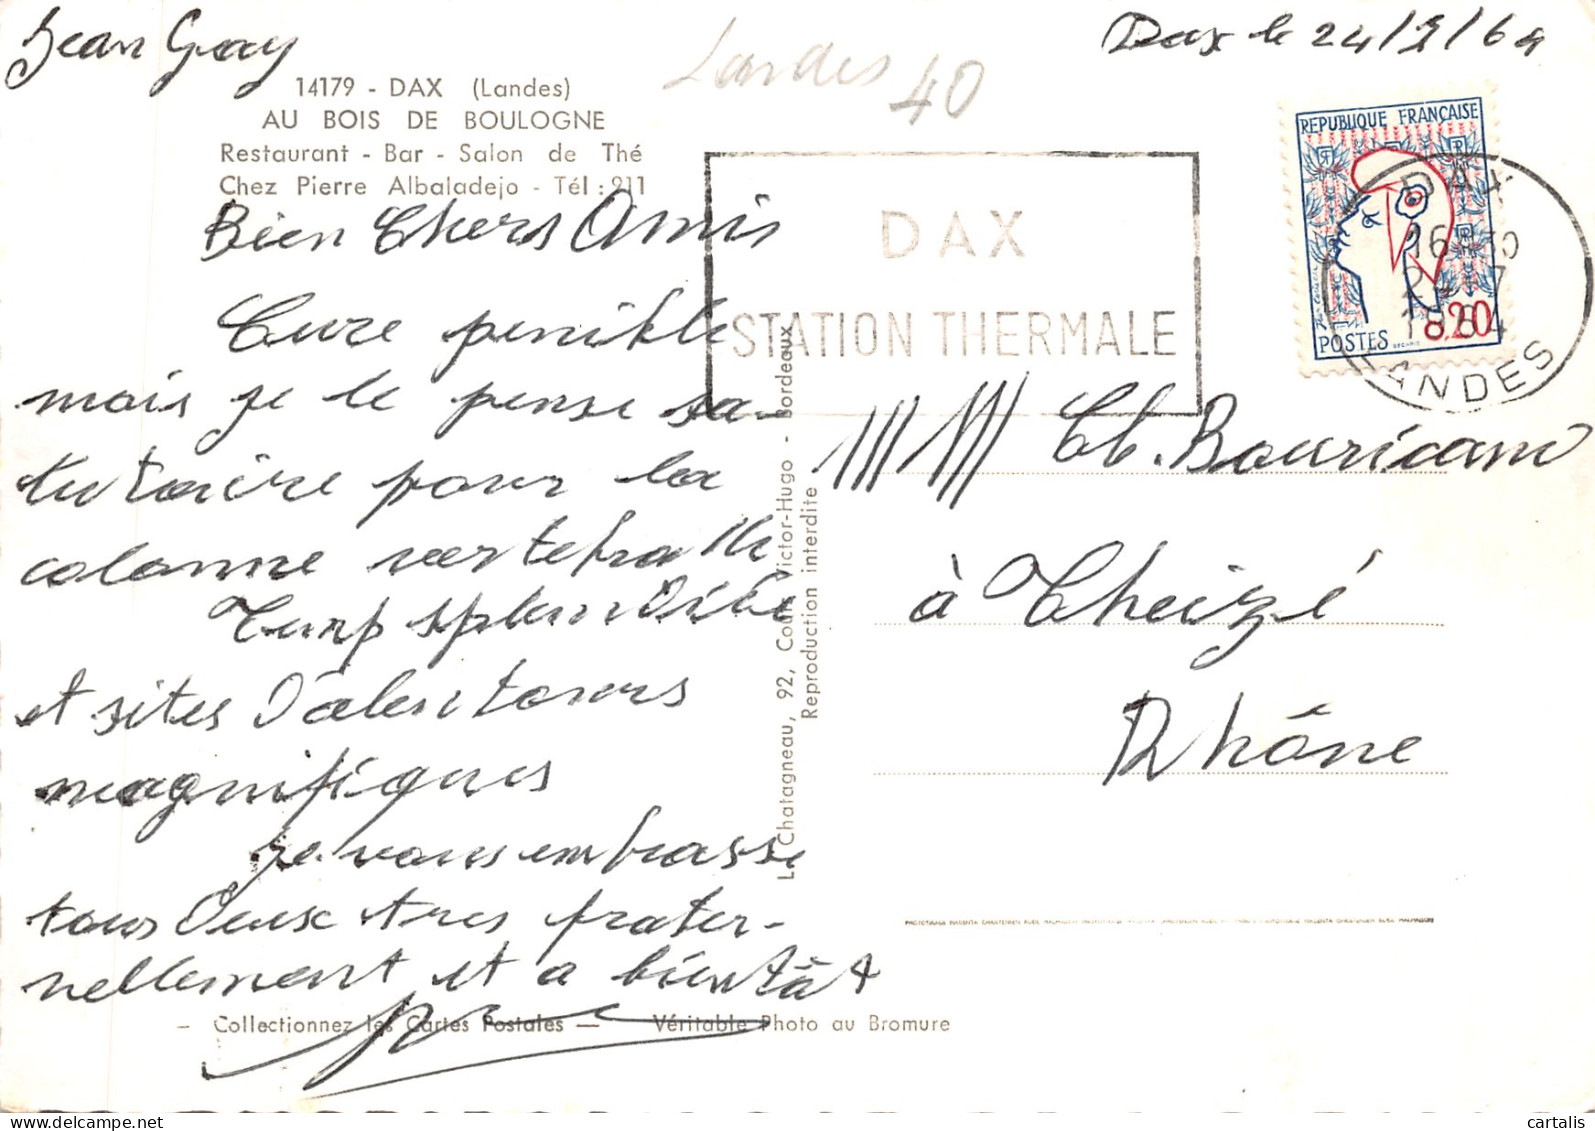 Jean Gay
Dax le 24/7/64
Landes 40
14179 - DAX (Landes)
AU BOIS DE BOULOGNE
Restaurant - Bar - Salon de Thé
Chez Pierre Albaladejo - Tél : 911
Bien Chers Amis
Cure penible
mais je le pense sa-
lutaire pour la
colonne vertebralle
Temp splendide
et sites d'alentours
magnifiques
je vous embrasse
tous deux tres frater-
nellement et a bientôt
DAX
STATION THERMALE
REPUBLIQUE FRANÇAISE
POSTES 0,20
DAX
16 H 30
24 - 7
1964
LANDES
à Theizé
Rhône
Chatagneau, 92, Cours Victor-Hugo - Bordeaux
Reproduction interdite
- Collectionnez les Cartes Postales - Véritable Photo au Bromure
cartalis
www.delcampe.net